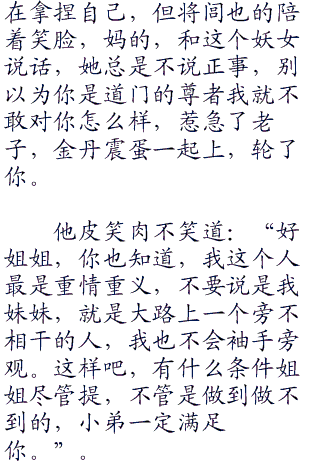 在拿捏自己，但将闾也的陪
着笑脸，妈的，和这个妖女
说话，她总是不说正事，别
以为你是道门的尊者我就不
敢对你怎么样，惹急了老
子，金丹震蛋一起上，轮了
你。
他皮笑肉不笑道：“好
姐姐，你也知道，我这个人
最是重情重义，不要说是我
妹妹，就是大路上一个旁不
相干的人，我也不会袖手旁
观。这样吧，有什么条件姐
姐尽管提，不管是做到做不
到的，小弟一定满足
你。”。